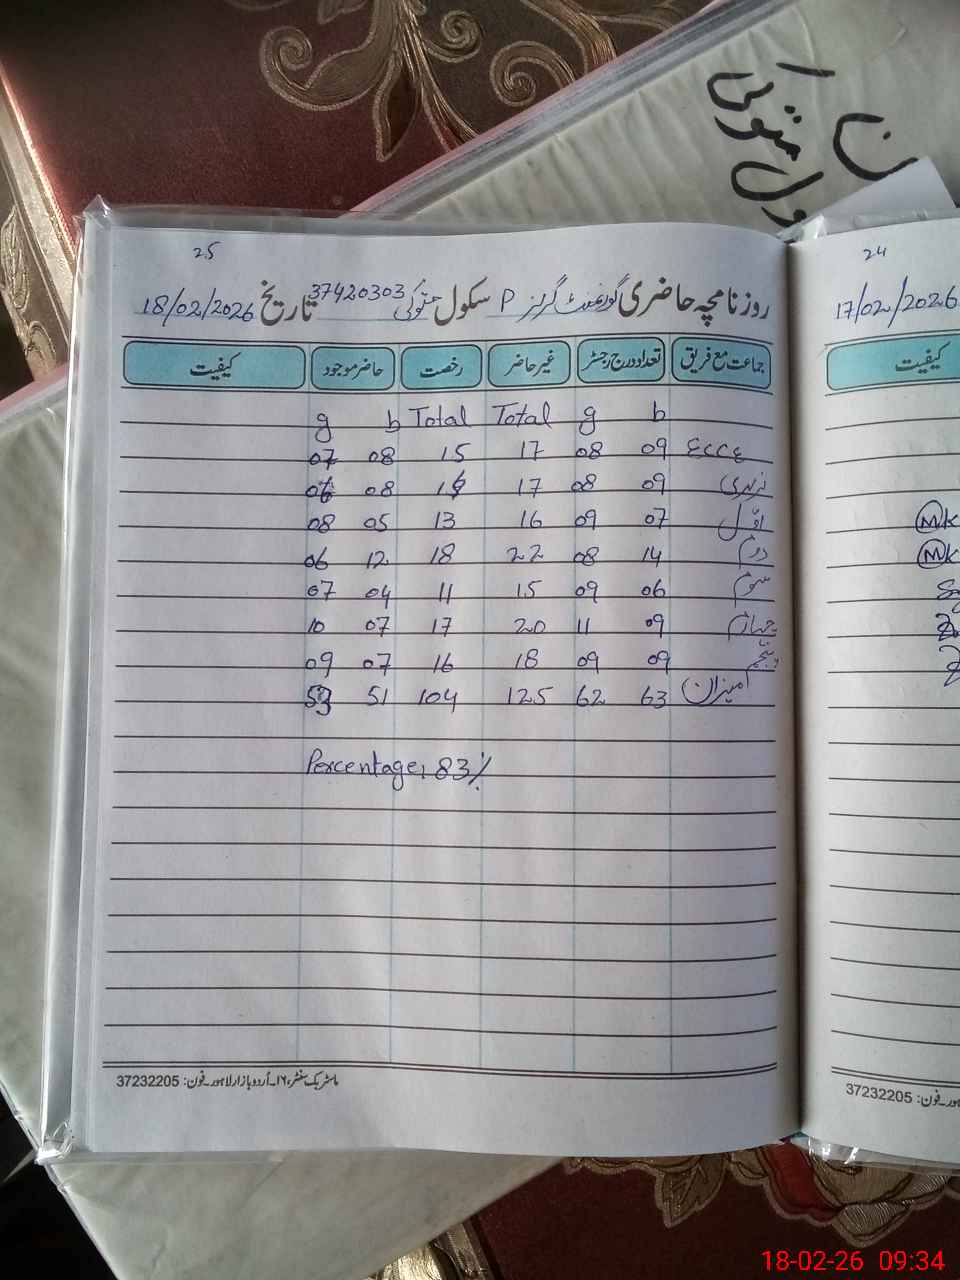 ن
ول متوکی
25
روزنامچہ حاضری گورنمنٹ گرلز P سکول متوکی 37420303 تاریخ 18/02/2026
جماعت مع فریق تعداد درج رجسٹر غیر حاضر رخصت حاضر موجود کیفیت
b g Total Total b g
ECCE 09 08 17 15 08 07
نرسری 09 08 17 14 08 06
اوّل 07 09 16 13 05 08
دوم 14 08 22 18 12 06
سوم 06 09 15 11 04 07
چہارم 09 11 20 17 07 10
پنجم 09 09 18 16 07 09
میزان 63 62 125 104 51 53
Percentage: 83%
ماسٹر بک سنٹر، ۱۶۔اُردو بازار لاہور۔فون: 37232205
24
17/02/2026
کیفیت
MK
MK
ہور۔فون: 37232205
18-02-26 09:34